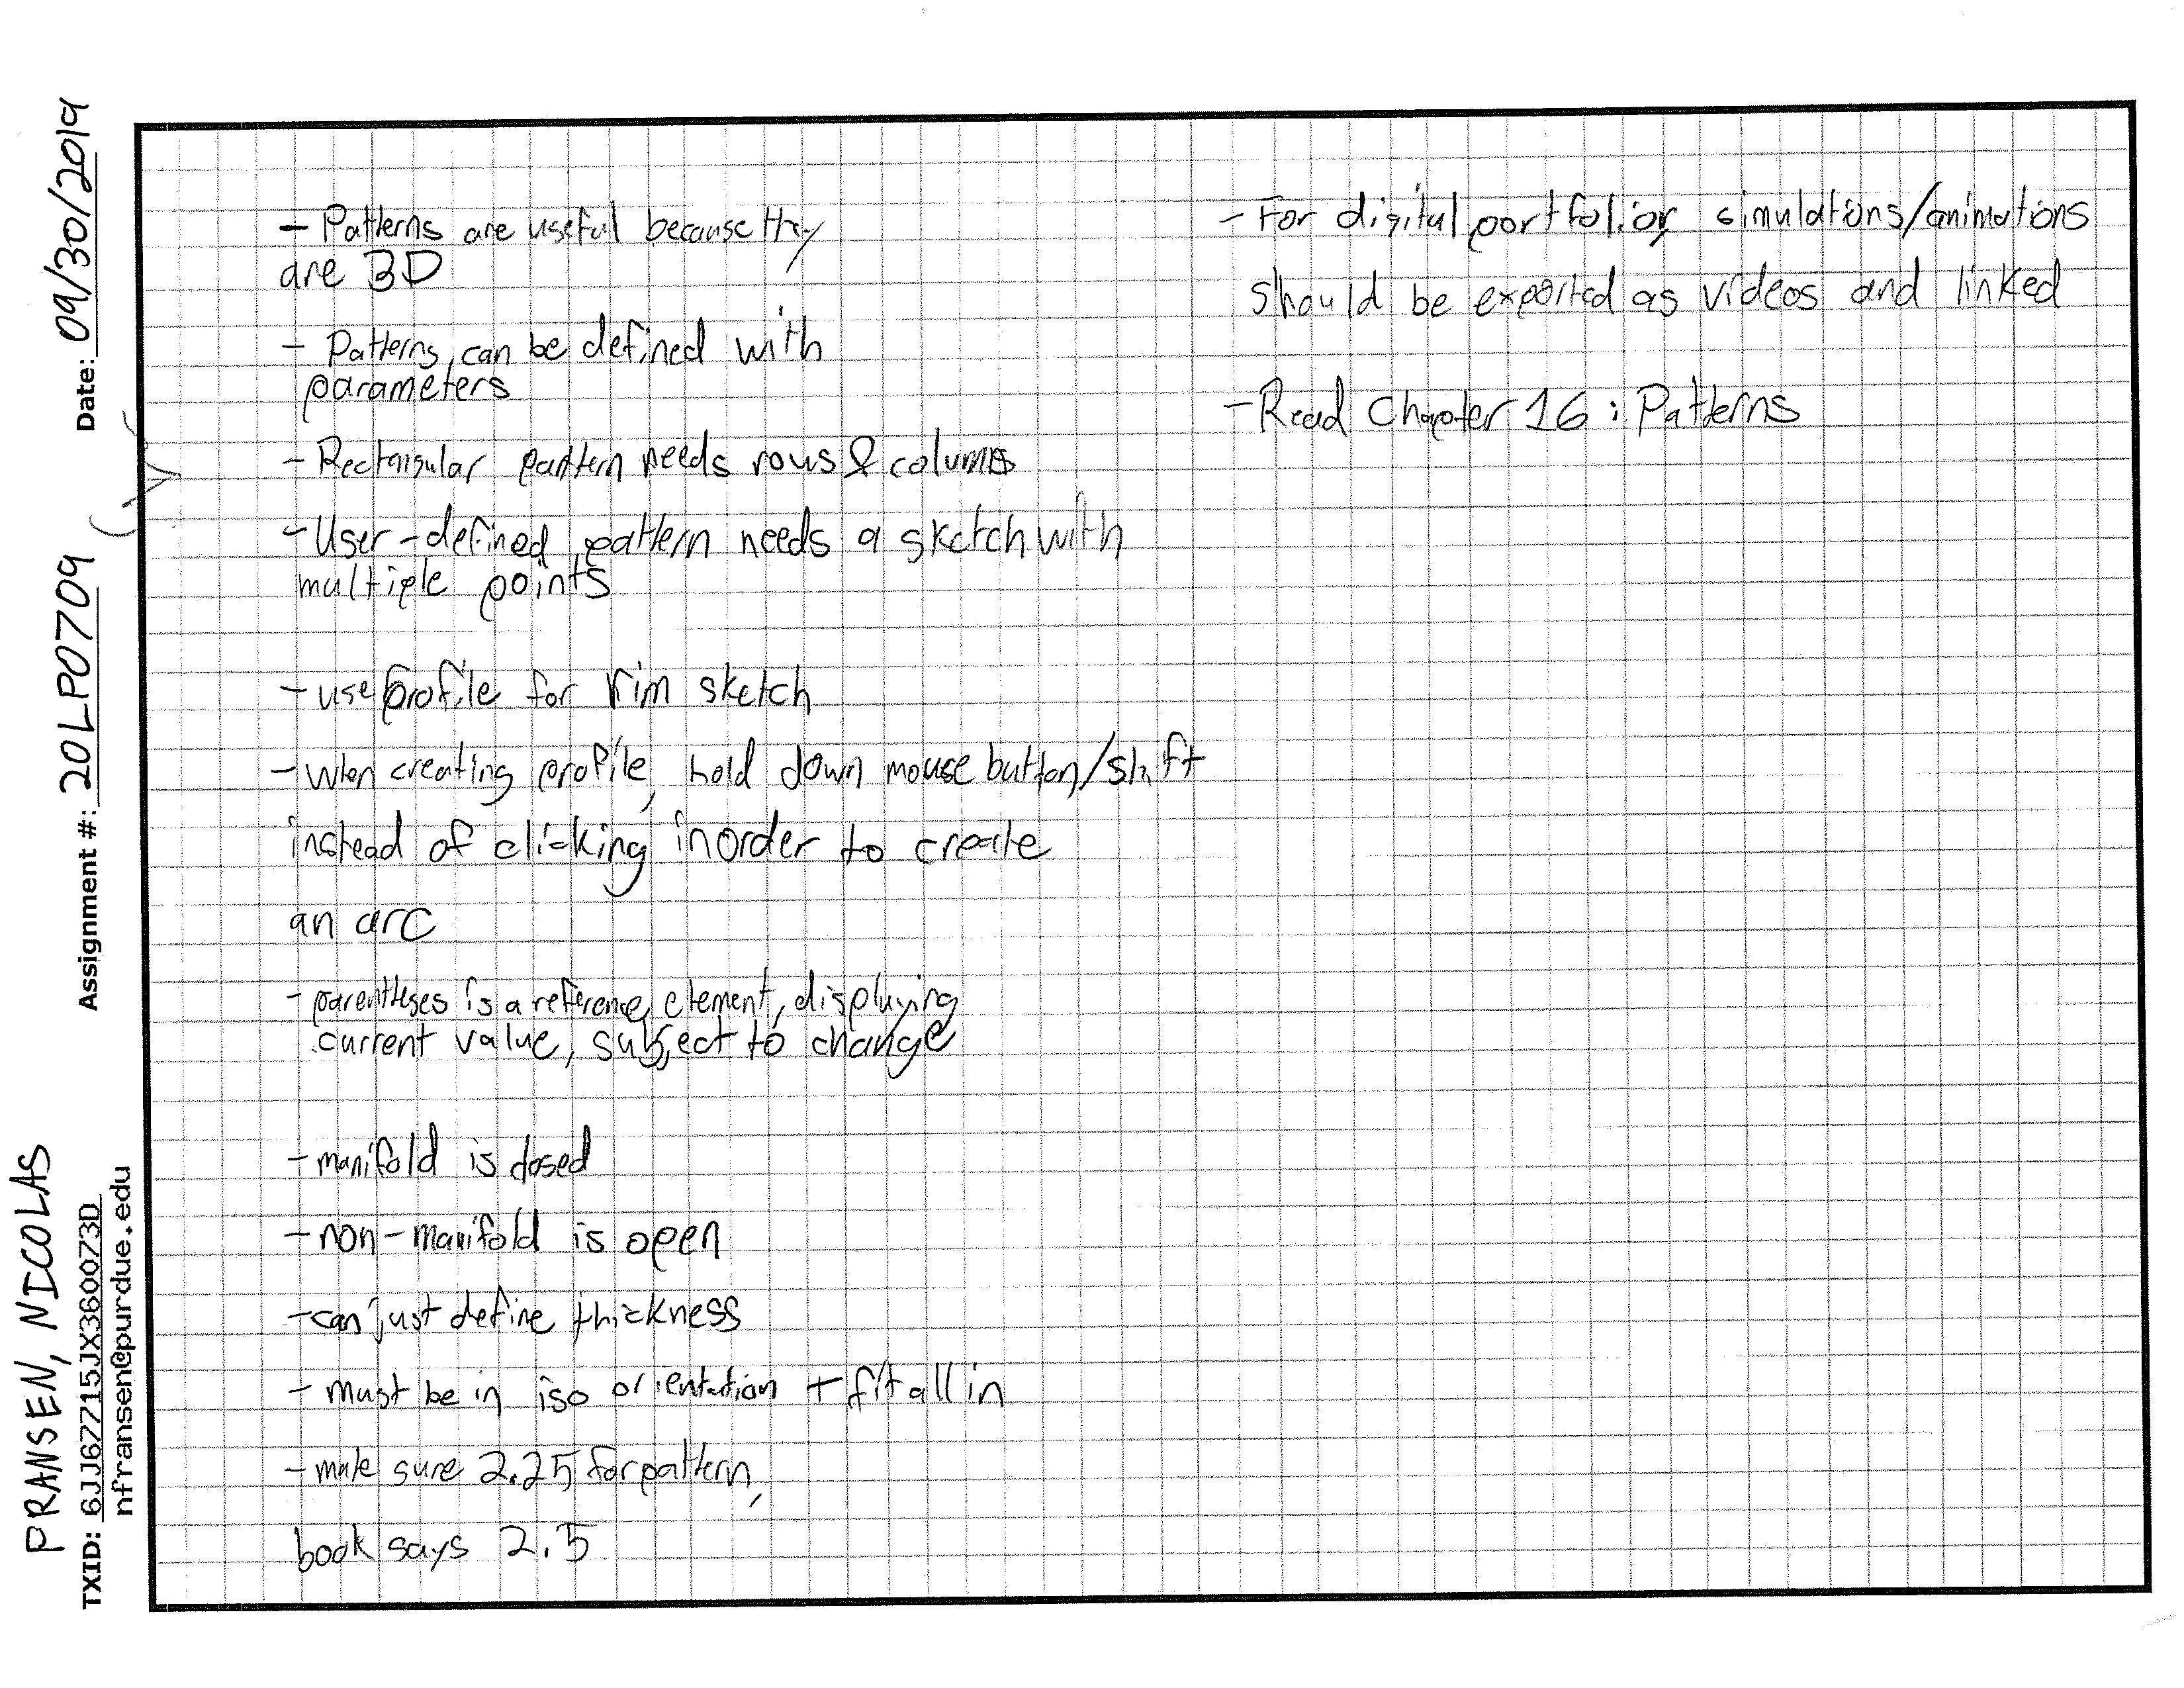 - Patterns are useful because they
are 3D
- Patterns can be defined with
parameters
- Rectangular pattern needs rows & columns
- User-defined pattern needs a sketch with
multiple points
- use profile for rim sketch
- When creating profile, hold down mouse button/shift
instead of clicking in order to create
an arc
- parentheses is a reference element, displaying
current value, subject to change
- manifold is closed
- non-manifold is open
- can just define thickness
- must be in iso orientation + fit all in
- make sure 2.25 for pattern,
book says 2.5
- For digital portfolio, simulations/animations
should be exported as videos and linked
- Read Chapter 16: Patterns
Date: 09/30/2019
Assignment #: 20LP0709
FRANSEN, NICOLAS
TXID: 6JJ6Z715JX360073D
nfransen@purdue.edu